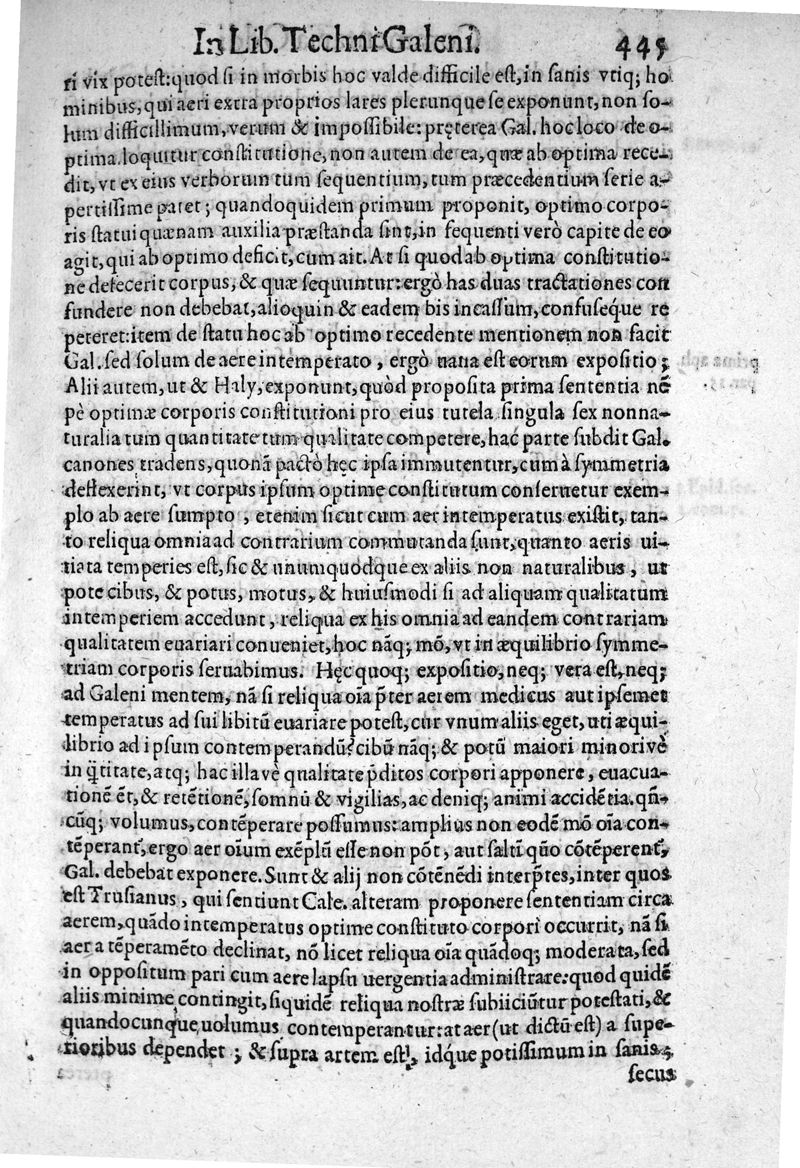 In Lib. Techni Galeni. 445
ri vix potest: quod si in morbis hoc valde difficile est, in sanis vtiq; ho
minibus, qui aeri extra proprios lares plerunque se exponunt, non so-
lum difficillimum, verum & impossibile: pręterea Gal. hoc loco de o-
ptima loquitur constitutione, non autem de ea, quæ ab optima rece-
dit, vt ex eius verborum tum sequentium, tum præcedentium serie a-
pertissime patet; quandoquidem primum proponit, optimo corpo-
ris statui quænam auxilia præstanda sint, in sequenti verò capite de eo
agit, qui ab optimo deficit, cum ait. At si quod ab optima constitutio-
ne defecerit corpus, & quæ sequuntur: ergò has duas tractationes con
fundere non debebat, alioquin & eadem bis incassum, confuseque re
peteret: item de statu hoc ab optimo recedente mentionem non facit
Gal. sed solum de aere intemperato, ergò uana est eorum expositio;
Alii autem, ut & Haly, exponunt, quòd proposita prima sententia nē
pè optimæ corporis constitutioni pro eius tutela singula sex nonna-
turalia tum quantitate tum qualitate competere, hac parte subdit Gal.
canones tradens, quonā pactò hęc ipsa immutentur, cum à symmetria
deflexerint, vt corpus ipsum optime constitutum conseruetur exem-
plo ab aere sumpto, etenim sicut cum aer intemperatus existit, tan-
to reliqua omnia ad contrarium commutanda sunt, quanto aeris ui-
tiata temperies est, sic & unumquodque ex aliis non naturalibus, ut
pote cibus, & potus, motus, & huiusmodi si ad aliquam qualitatum
intemperiem accedunt, reliqua ex his omnia ad eandem contrariam
qualitatem euariari conueniet, hoc nāq; mō, vt in æquilibrio symme-
triam corporis seruabimus. Hęc quoq; expositio, neq; vera est, neq;
ad Galeni mentem, nā si reliqua oīa p̄ter aerem medicus aut ipsemet
temperatus ad sui libitū euariare potest, cur vnum aliis eget, uti æqui-
librio ad ipsum contemperandū? cibū nāq; & potū maiori minorivè
in q̄titate, atq; hac illavè qualitate p̄ditos corpori apponere, euacua-
tionē ēt, & retētionē, somnū & vigilias, ac deniq; animi accidētia. qñ-
cūq; volumus, contēperare possumus: amplius non eodē mō oīa con-
tēperant, ergo aer oium exēplū esse non pōt, aut saltū quo cōtēperent,
Gal. debebat exponere. Sunt & alij non cōtēnēdi interp̄tes, inter quos
est Trusianus, qui sentiunt Cale. alteram proponere sententiam circa
aerem, quādo intemperatus optime constituto corpori occurrit, nā si
aer a tēperamēto declinat, nō licet reliqua oīa quādoq; moderata, sed
in oppositum pari cum aere lapsu uergentia administrare: quod quidē
aliis minime contingit, siquidē reliqua nostræ subiiciūtur potestati, &
quandocunque uolumus contemperantur: at aer (ut dictū est) a supe-
rioribus dependet; & supra artem est, idq́ue potissimum in sanis,
secus